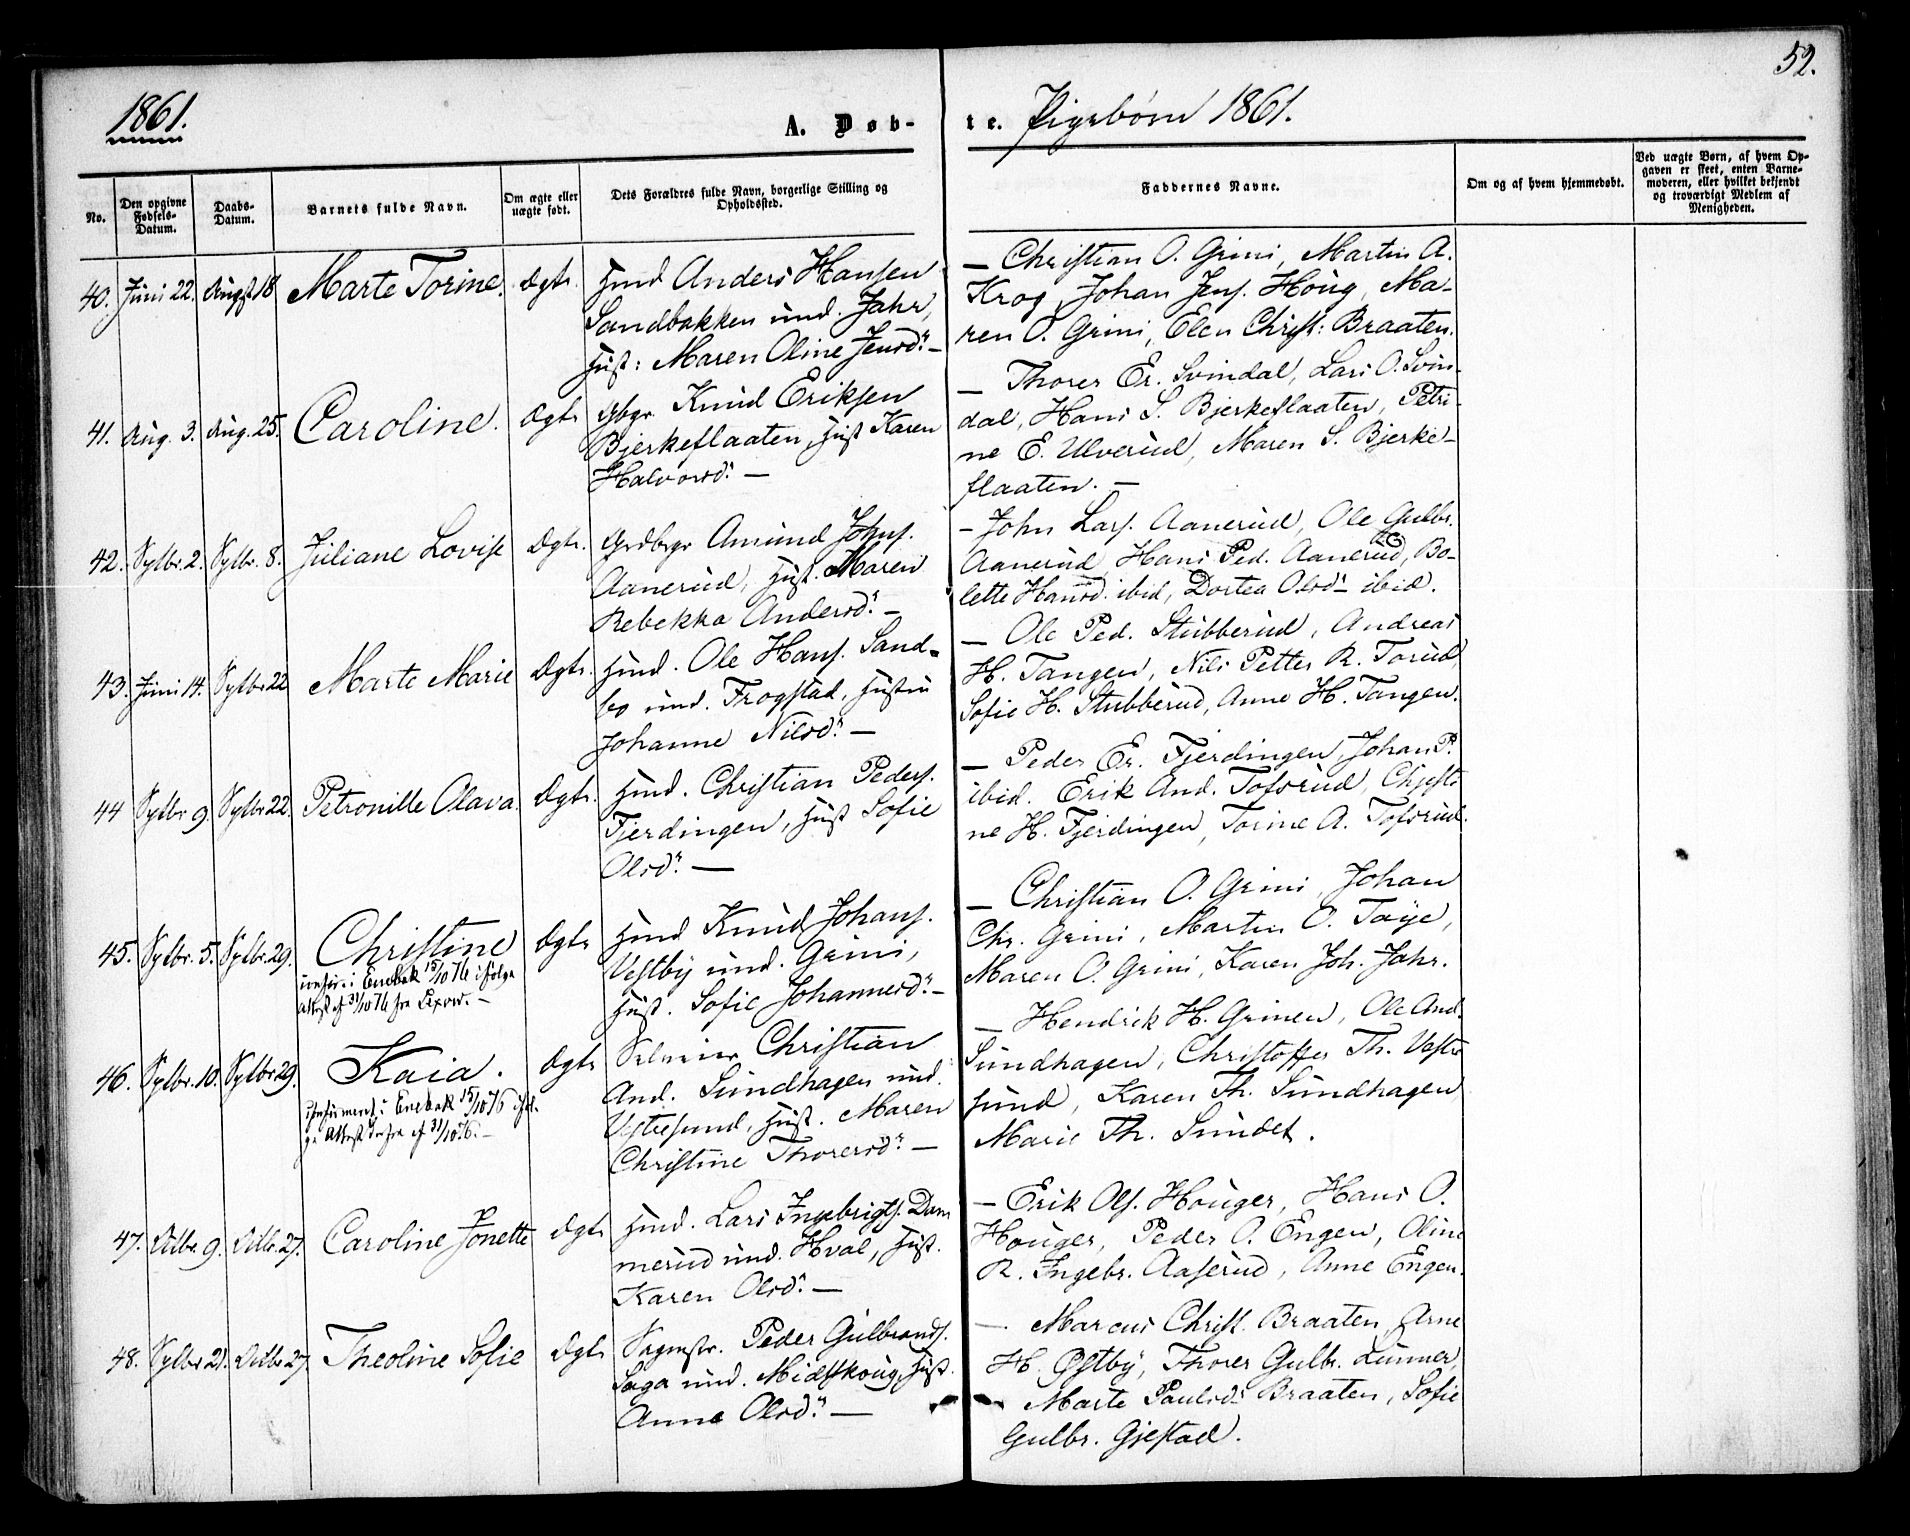 52.
1861.
A. Døb-
te. Pigebørn 1861.
No.
Den opgivne Fødsels-Datum.
Daabs-Datum.
Barnets fulde Navn.
Om ægte eller uægte født.
Dets Forældres fulde Navn, borgerlige Stilling og Opholdssted.
Faddernes Navne.
Om og af hvem hjemmedøbt.
Ved uægte Børn, af hvem Op-
gaven er skeet, enten Barne-
moderen, eller hvilket bekjendt
og troværdigt Medlem af
Menigheden.
40. Juni 22. Augst 18 Marte Torine. Ægte. Huusmd Anders Hansen
Sandbakken und. Jahr,
Hust: Maren Oline Jensd.
— Christian O. Grini, Martin A.
Krog, Johan Jens. Houg, Ma-
ren O. Grini, Elen Christ: Braaten.
41. Aug. 3. Aug. 25. Caroline. Ægte Gbgr. Knud Eriksen
Bjerkeflaaten, Hust Karen
Halvorsd. —
— Thorer Er. Svindal, Lars O. Svin-
dal, Hans S. Bjerkeflaaten, Petri-
ne E. Ulverud, Maren S. Bjerke-
flaaten. —
42. Sptbr. 2. Sptbr. 8. Juliane Lovise Ægte. Grdbrgr Amund Johns.
Aanerud, Hust. Maren
Rebekka Andersd. —
— John Lars. Aanerud, Ole Gulbr.
Aanerud, Hans Ped. Aanerud, Bo-
lette Hansd. ibid, Dortea Olsd. ibid.
43. Juni 14. Sptbr 22 Marte Marie Ægte. Hmd. Ole Hans. Sand-
bo und. Frogstad, Hustru
Johanne Nilsd. —
— Ole Ped. Stubberud, Andreas
H. Tangen, Nils Petter R. Torud,
Sofie H. Stubberud, Anne H. Tangen.
44 Sptbr 9. Sptbr 22. Petronille Olava. Ægte. Hmd. Christian Peders.
Fjerdingen, Hust Sofie
Olsd. —
— Peder Er. Fjerdingen, Johan P.
ibid. Erik And. Tofsrud, Christi-
ne H. Fjerdingen, Torine A. Tofsrud.
45. Sptbr. 5. Sptbr. 29. Christine Ægte Hmd Knud Johans.
Vestby und. Grini,
Hust. Sofie Johannesd. —
i Enebak 15/10 76 ifølge
Attest af 31/10 76 fra
— Christian O. Grini, Johan
Chr. Grini, Martin O. Taije,
Maren O. Grini, Karen Joh. Jahr.
46. Sptbr. 10. Sptbr 29. Kaia. Ægte Selveier Christian
And. Sundhagen und.
Vestresund, Hust. Maren
Christine Thorersd. —
i Enebak 15/10 76
Attest derfra af 31/10 76. —
— Hendrik H. Grinen, Ole And.
Sundhagen, Christoffer Th. Vestre
sund, Karen Th. Sundhagen
Marie Th. Sundet.
47. Octbr. 9. Octbr. 27. Caroline Jonette Ægte Hmd. Lars Ingebrigts. Dam
merud und. Hval, Hust.
Karen Olsd. —
— Erik Ols. Houger, Hans O.
Houger, Peder O. Engen, Oline
R. Ingebr. Aaserud, Anne Engen.
48. Sptbr 21. Octbr 27. Theoline Sofie Ægte Sagmstr. Peder Gulbrands.
Saga und. Midtskoug, Hust.
Anne Olsd. —
— Marcus Christ. Braaten, Arne
H. Østby, Thorer Gulbr. Lunner,
Marte Paulsd. Braaten, Sofie
Gulbr. Gjestad.